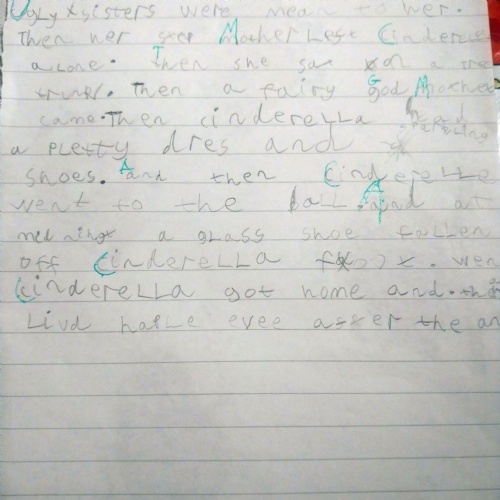 Ugly sisters were mean to her.
Then her step Mother Left Cinderella
alone. Then she sat on a tree
trunk. Then a fairy God Mother
came. Then cinderella had
a pletty dres and sparkling
shoes. And then Cinderelle
went to the ball. And at
medningt a glass shoe fallen
off Cinderella foot. wen
Cinderella got home and. the
Livd hatle evee after the an